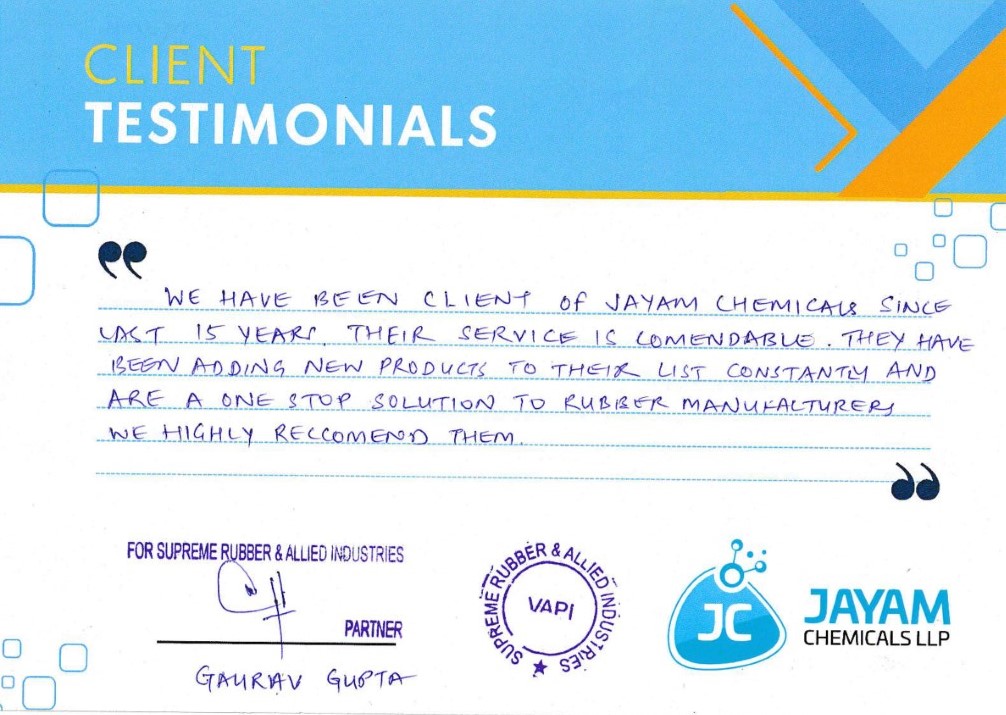 CLIENT
TESTIMONIALS
WE HAVE BEEN CLIENT OF JAYAM CHEMICALS SINCE
LAST 15 YEARS. THEIR SERVICE IS COMENDABLE. THEY HAVE
BEEN ADDING NEW PRODUCTS TO THEIR LIST CONSTANTLY AND
ARE A ONE STOP SOLUTION TO RUBBER MANUFALTURERS
WE HIGHLY RECCOMEND THEM.
FOR SUPREME RUBBER & ALLIED INDUSTRIES
PARTNER
GAURAV GUPTA
SUPREME RUBBER & ALLIED INDUSTRIES
VAPI
JC
JAYAM
CHEMICALS LLP